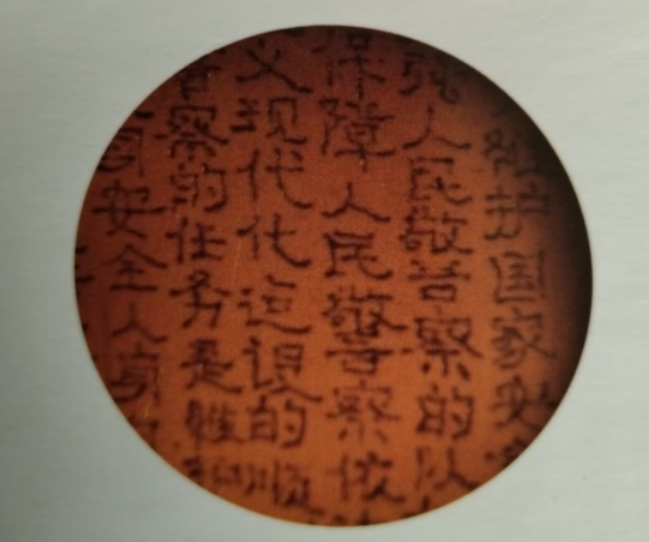 维护国家安
人民警察的队
保障人民警察依
义现代化建设的顺
警察的任务是维
安全人身